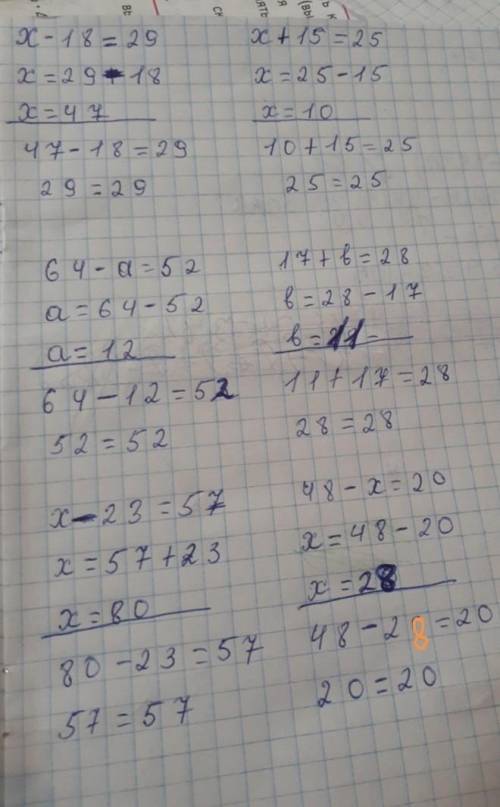 x - 18 = 29
x = 29 + 18
x = 47
47 - 18 = 29
29 = 29
x + 15 = 25
x = 25 - 15
x = 10
10 + 15 = 25
25 = 25
64 - a = 52
a = 64 - 52
a = 12
64 - 12 = 52
52 = 52
17 + в = 28
в = 28 - 17
в = 11
11 + 17 = 28
28 = 28
x - 23 = 57
x = 57 + 23
x = 80
80 - 23 = 57
57 = 57
48 - x = 20
x = 48 - 20
x = 28
48 - 28 = 20
20 = 20